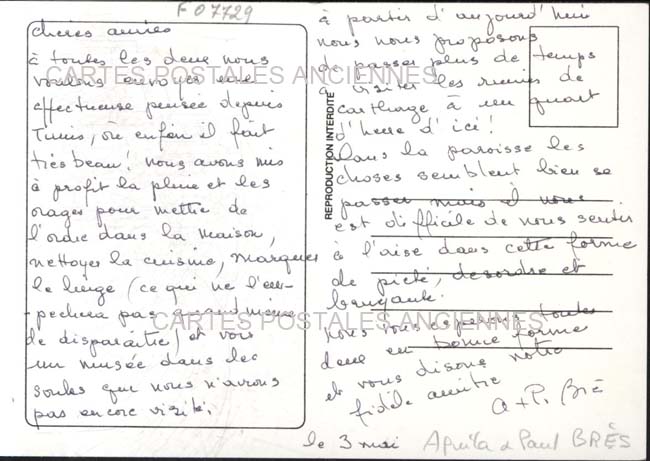 F 07729
cheres amies
à toutes les deux nous
voulons envoyer une
affectueuse pensée depuis
Tunis, où enfin il fait
très beau! nous avons mis
à profit la pluie et les
orages pour mettre de
l'ordre dans la maison,
nettoyer la cuisine, marquer
le linge (ce qui ne l'em-
-pechera pas quand même
de disparaitre) et voir
un musée dans les
souks que nous n'avions
pas encore visité.
à partir d'aujourd'hui
nous nous proposons
de passer plus de temps
à visiter les ruines de
carthage à un quart
d'heure d'ici!
Dans la paroisse les
choses semblent bien se
passer mais il nous
est difficile de nous sentir
à l'aise dans cette forme
de piété, desordre et
bruyante.
nous vous esperons toutes
deux en bonne forme
et vous disons notre
fidèle amitié
A + P. Brès
le 3 mai
Paul BRÈS
REPRODUCTION INTERDITE
CARTES POSTALES ANCIENNES
CARTES POSTALES ANCIENNES